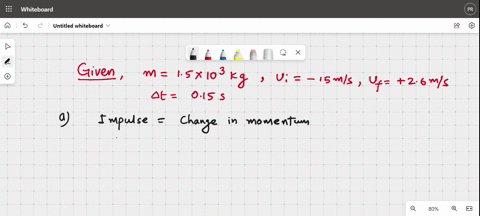 Whiteboard
PR
Untitled whiteboard
Given, m = 1.5 × 10³ kg, υi = -15 m/s, υf = +2.6 m/s
Δt = 0.15 s
a) Impulse = Change in momentum
80%